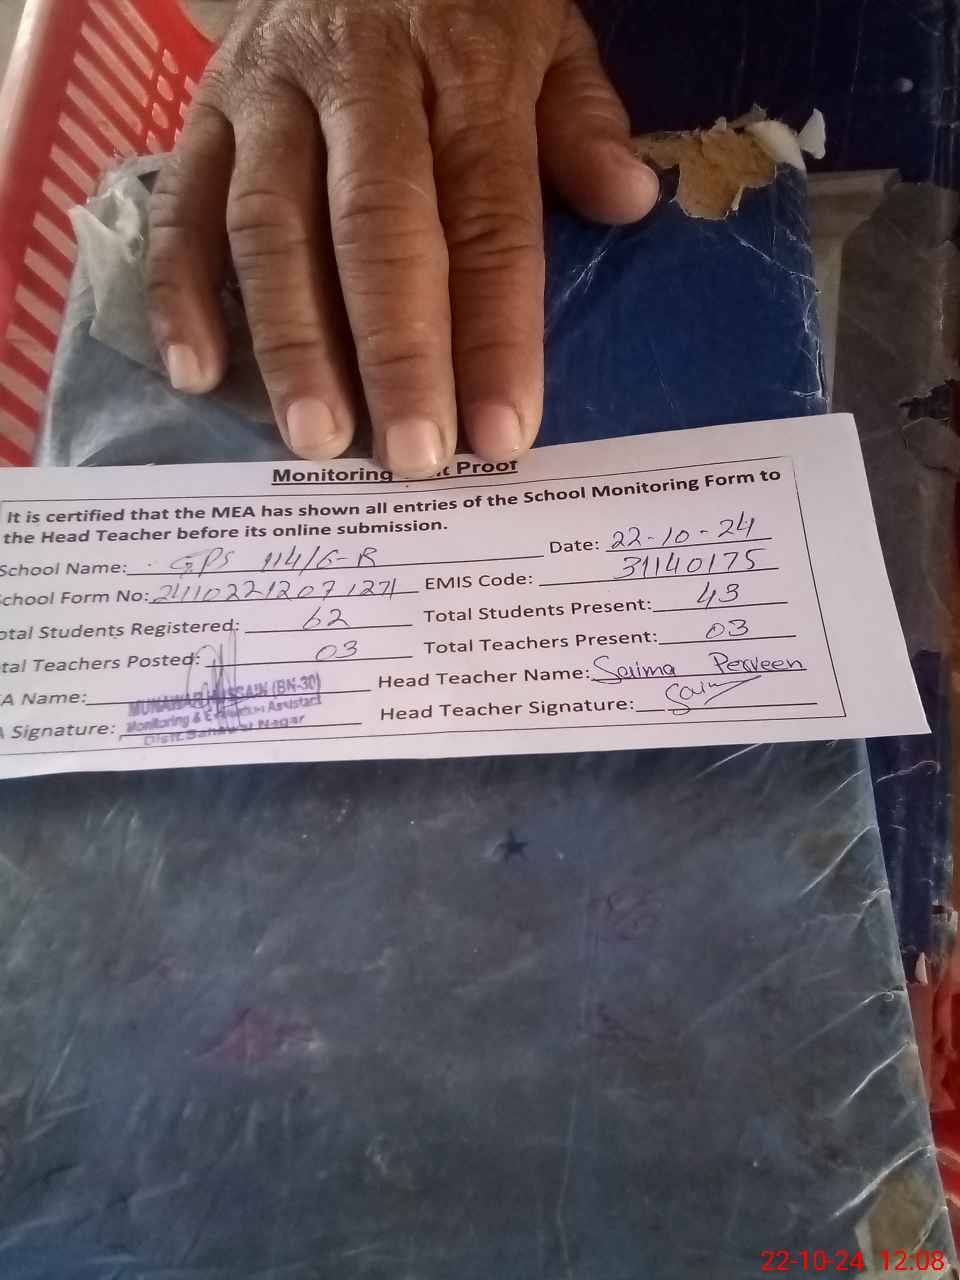 Monitoring it Proof
It is certified that the MEA has shown all entries of the School Monitoring Form to
the Head Teacher before its online submission.
School Name: GPS 114/6-R Date: 22-10-24
chool Form No: EMIS Code: 31140175
otal Students Registered: 62 Total Students Present: 43
tal Teachers Posted: 03 Total Teachers Present: 03
A Name: MUNAWAR HUSSAIN (BN-30) Head Teacher Name: Saima Perveen
Monitoring & Evaluation Assistant
A Signature: Distt. Bahawal Nagar Head Teacher Signature: Saim
22-10-24 12:08